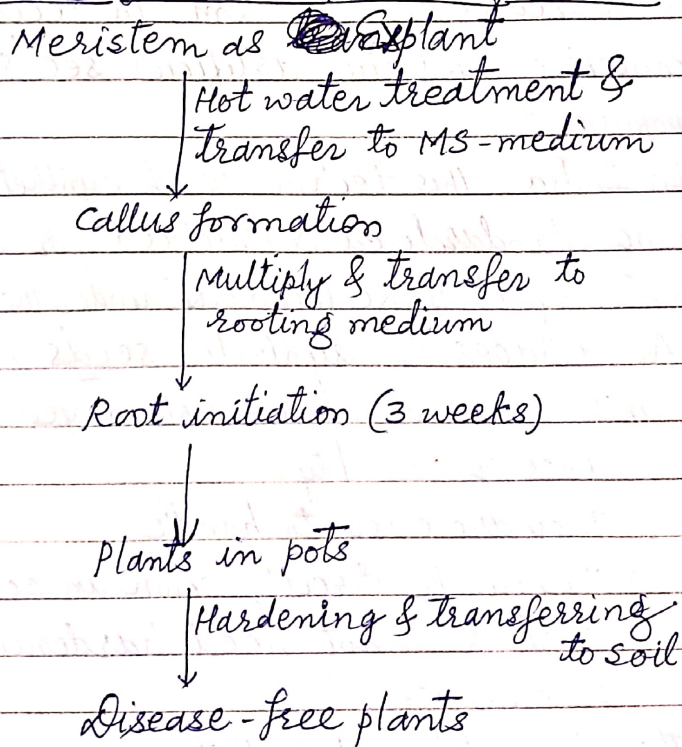 Meristem as Explant
Hot water treatment &
transfer to MS-medium
Callus formation
Multiply & transfer to
rooting medium
Root initiation (3 weeks)
Plants in pots
Hardening & transferring
to soil
Disease-free plants